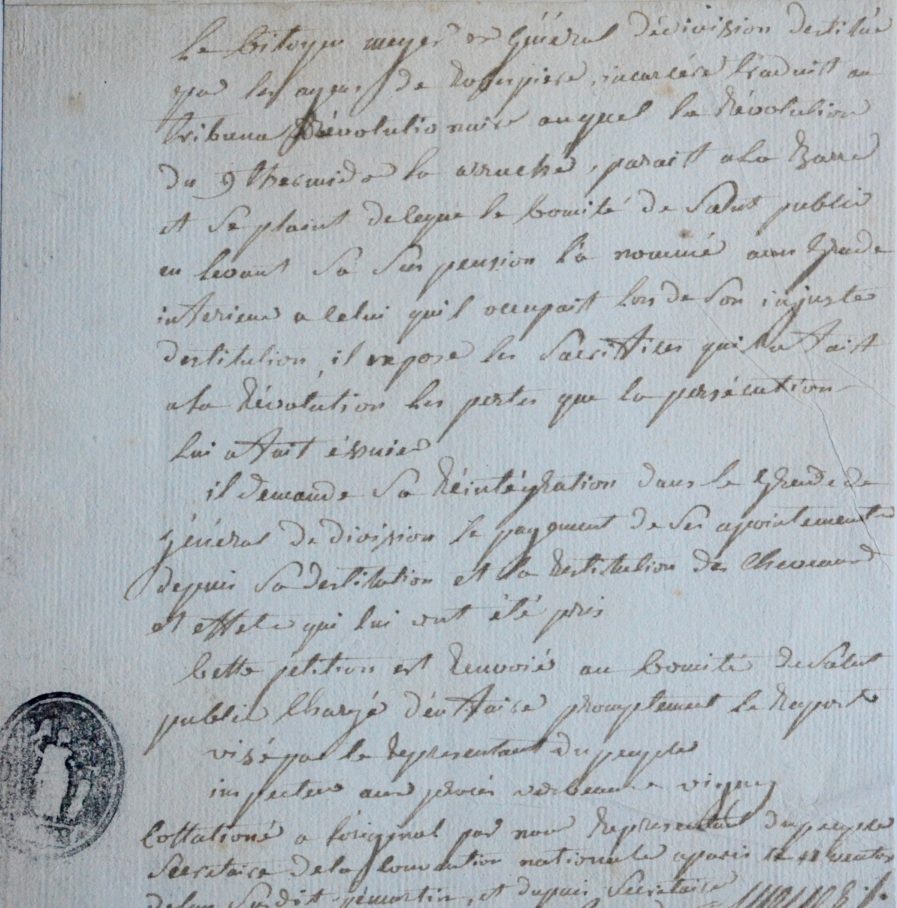 Le Citoyen meyer ex Général dedivision destitué
par les agens de Robespiere, incarcéré traduit au
tribunal Révolutionaire auquel la Révolution
du 9 thermidor la arraché, parait ala Barre
et Se plaint deceque le Comité de Salut public
en levant Sa Suspension l'a nommé aun Grade
inferieur a Celui qu'il occupait Lors de Son injuste
destitution, il expose les Sacrifices qu'il a fait
ala Révolution les pertes que la persécution
Lui a fait éssuier
il demande Sa Réintégration dans le Grade de
Général de division le payement de Ses apointements
depuis Sa destitution et la Restitution des Chevaux
et effets qui lui ont été pris
Cette petition est Renvoié au Comité de Salut
public Chargé d'en faire promptement le Raport
visé par le Representant du peuple
inspecteur aux procès verbeaux
Collationé a l'original par nous Representant du peuple
Secretaire de la Convention nationale aparis le
de lan Susdit et depuis Secretaire